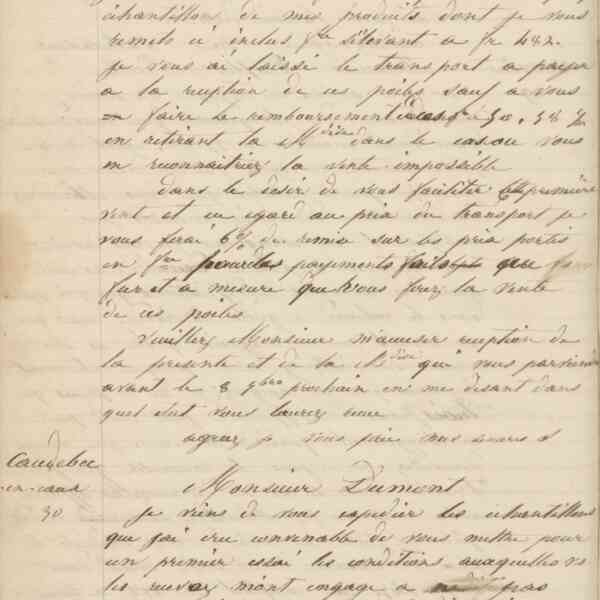 échantillons de mes produits dont je vous
remets ci inclus fre s'élevant a fr 482.
je vous ai laissé le transport a payer
a la reception de ces poiles sauf a vous
en faire le remboursement
en retirant la Mdise dans le cas ou vous
en reconnaitriez la vente impossible
dans le desir de vous faciliter première
vent et en egard au prix du transport je
vous ferai 6% de remise sur les prix portés
en fre payements que
fur et a mesure que vous ferez la vente
de ces poiles
Veuillez Monsieur m'accuser reception de
la presente et de la Mdise qui vous parviendra
avant le 8 9bre prochain en me disant dans
quel etat vous l'aurez
agreez je vous prie mes
Caudebec
en-caux
30
Monsieur Dumont
je viens de vous expedier les échantillons
que j'ai cru convenable de vous mettre pour
un premier essai les conditions auxquelles vs
les recevez m'ont engagé a pas